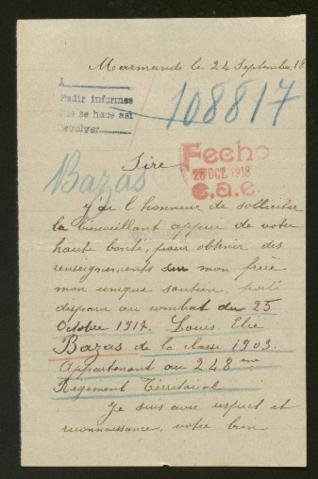 Marmande le 24 Septembre 18
A
Pedir informes
Que se hace así
Devolver
108817
Sire
Fecho
26 OCT. 1918
C.a.e.
Bazas
J'ai l'honneur de solliciter
la bienveillant appui de votre
haute bonté, pour obtenir des
renseignements sur mon frère
mon unique soutien, porté
disparu au combat du 25
Octobre 1917. Louis Elie
Bazas de la classe 1903.
Appartenant au 248 ème
Régiment Térritorial
Je suis avec respect et
reconnaissance, votre bien